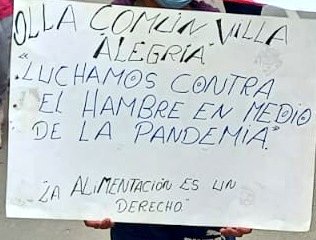 OLLA COMÚN VILLA
ALEGRÍA
"LUCHAMOS CONTRA
EL HAMBRE EN MEDIO
DE LA PANDEMIA."
"LA ALIMENTACIÓN ES UN
DERECHO"